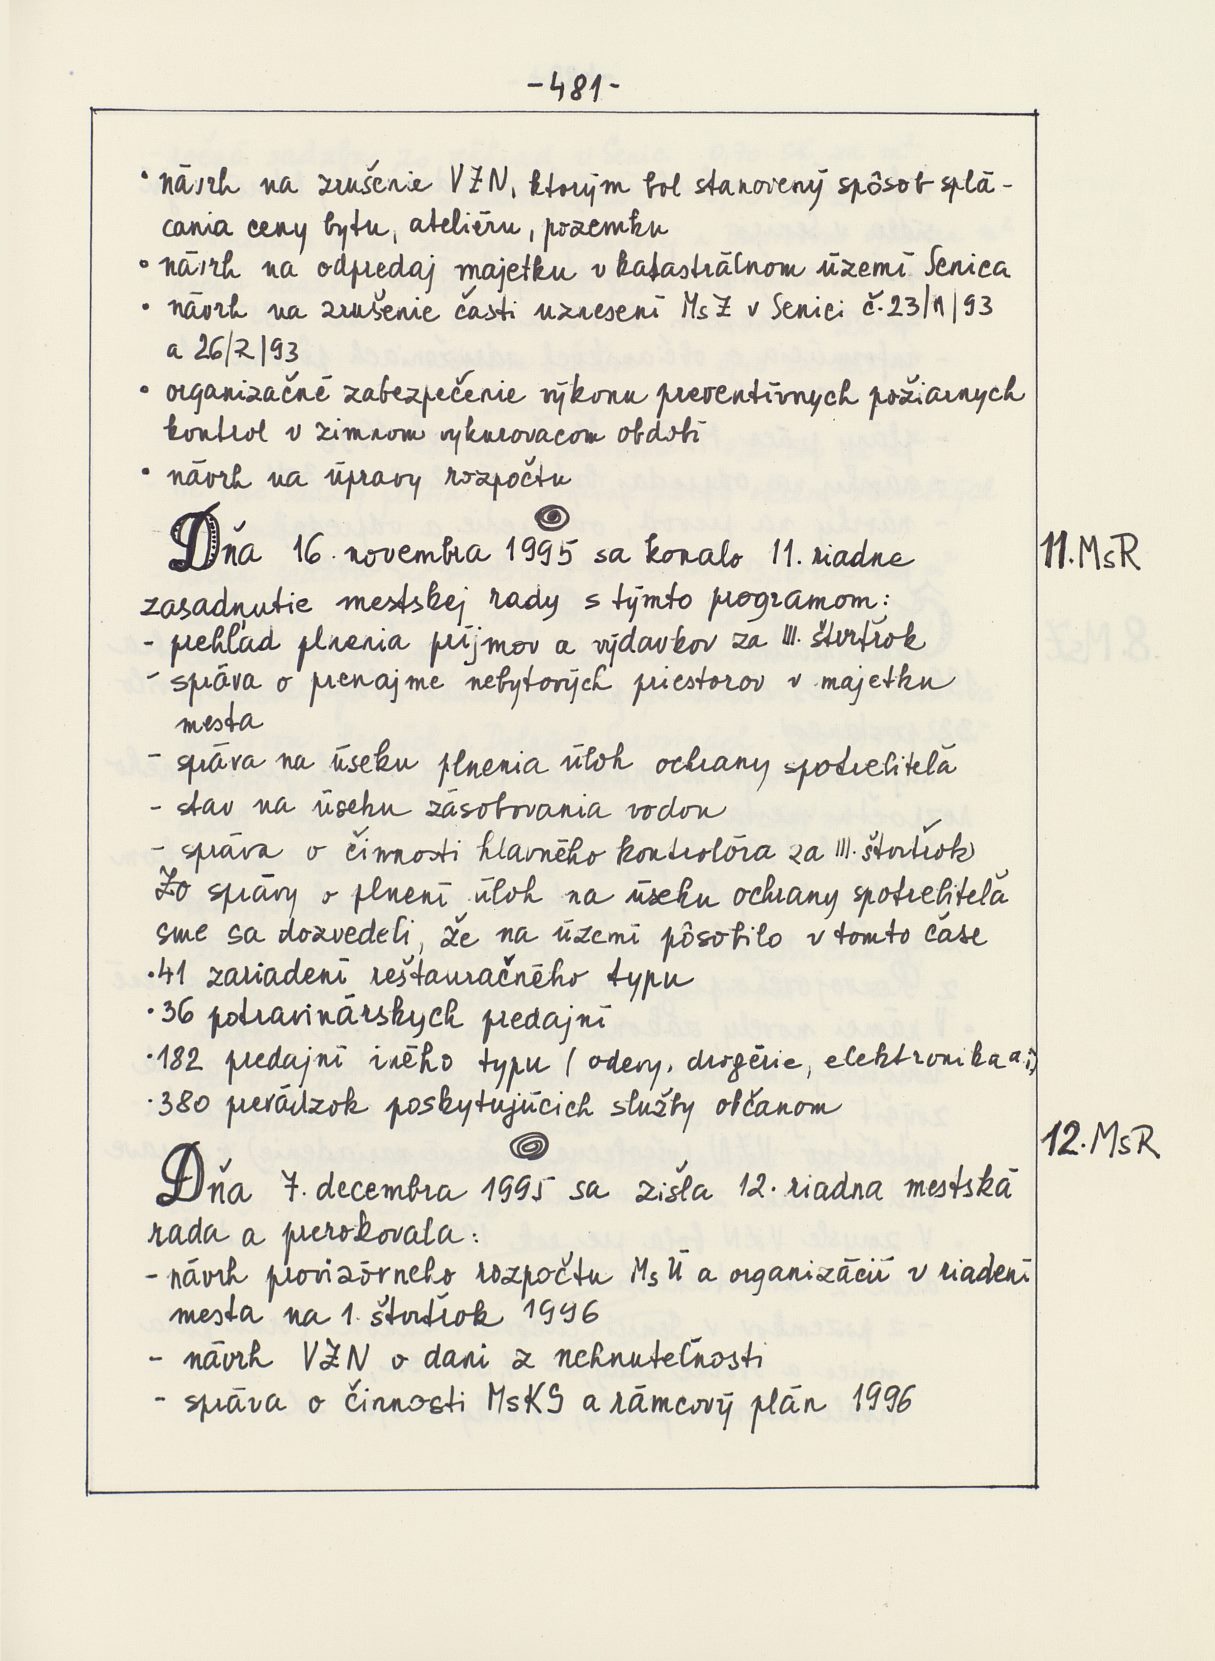 -481-
• návrh na zrušenie VZN, ktorým bol stanovený spôsob splá-
cania ceny bytu, ateliéru, pozemku
• návrh na odpredaj majetku v katastrálnom území Senica
• návrh na zrušenie časti uznesení MsZ v Senici č. 23/11/93
a 26/Z/93
• organizačné zabezpečenie výkonu preventívnych požiarnych
kontrol v zimnom vykurovacom období
• návrh na úpravy rozpočtu
Dňa 16. novembra 1995 sa konalo 11. riadne
11. MsR
zasadnutie mestskej rady s týmto programom:
- prehľad plnenia príjmov a výdavkov za III. štvrťrok
- správa o prenajme nebytových priestorov v majetku
mesta
- správa na úseku plnenia úloh ochrany spotrebiteľa
- stav na úseku zásobovania vodou
- správa o činnosti hlavného kontrolóra za III. štvrťrok
Zo správy o plnení úloh na úseku ochrany spotrebiteľa
sme sa dozvedeli, že na území pôsobilo v tomto čase
• 41 zariadení reštauračného typu
• 36 potravinárskych predajní
• 182 predajní iného typu (odevy, drogérie, elektronika a i.)
• 380 prevádzok poskytujúcich služby občanom
12. MsR
Dňa 7. decembra 1995 sa zišla 12. riadna mestská
rada a prerokovala:
- návrh provizórneho rozpočtu MsÚ a organizácií v riadení
mesta na 1. štvrťrok 1996
- návrh VZN o dani z nehnuteľnosti
- správa o činnosti MsKS a rámcový plán 1996